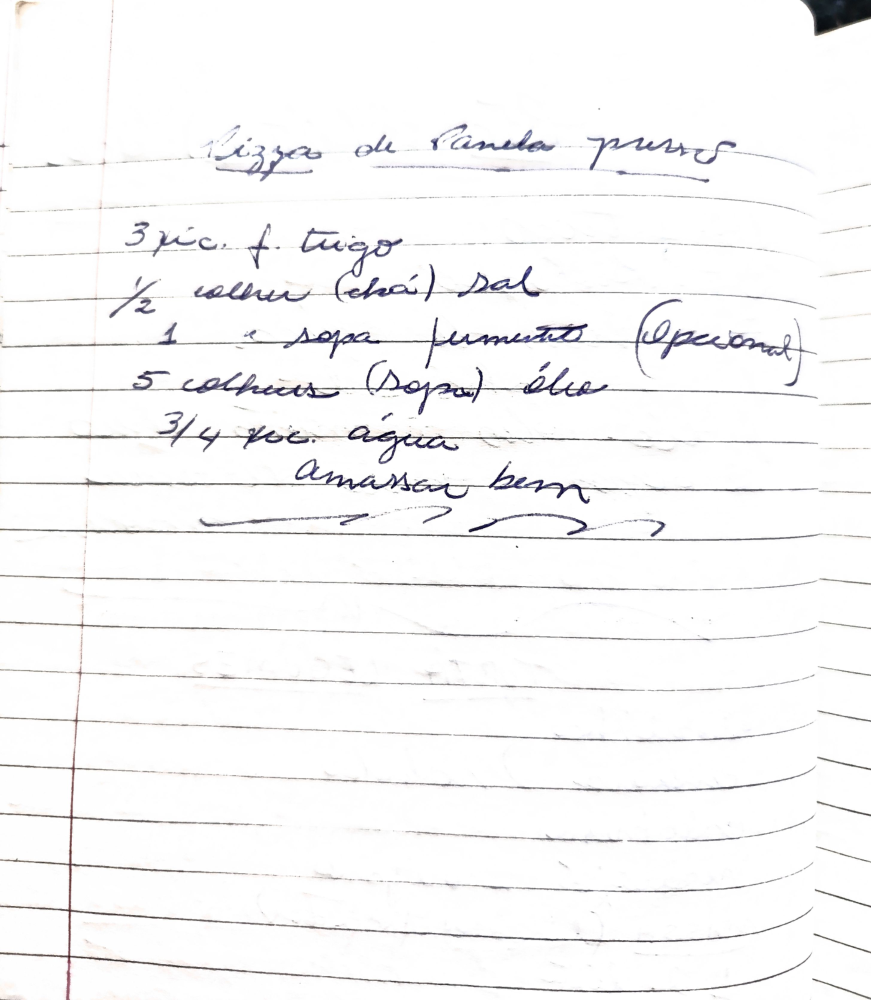 Pizza de Panela pressão
3 xic. f. trigo
1/2 colher (chá) sal
1 " sopa fermento (Opcional)
5 colheres (sopa) óleo
3/4 xic. água
Amassar bem